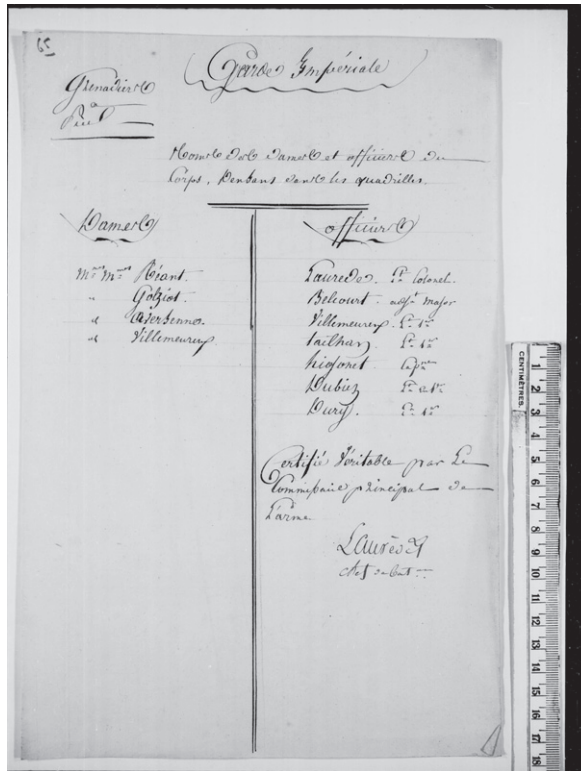 65
Garde Impériale
Grenadiers
à
Pied
Noms des dames et officiers du
Corps, dansans dans les quadrilles.
Dames
Mmes Mmes Réant.
" Golziot.
" 
" Villemeureux.
Officiers
Laurède. Colonel.
Belcourt. adjt major
Villemeureux. Lt
tailhan Lt
higonet Capne
Dubiez Lt
Dury. Lt
Certifié Véritable par Le
Commissaire principal de
L'arme
Laurède
chef de Bat
CENTIMÈTRES.
1
2
3
4
5
6
7
8
9
10
11
12
13
14
15
16
17
18